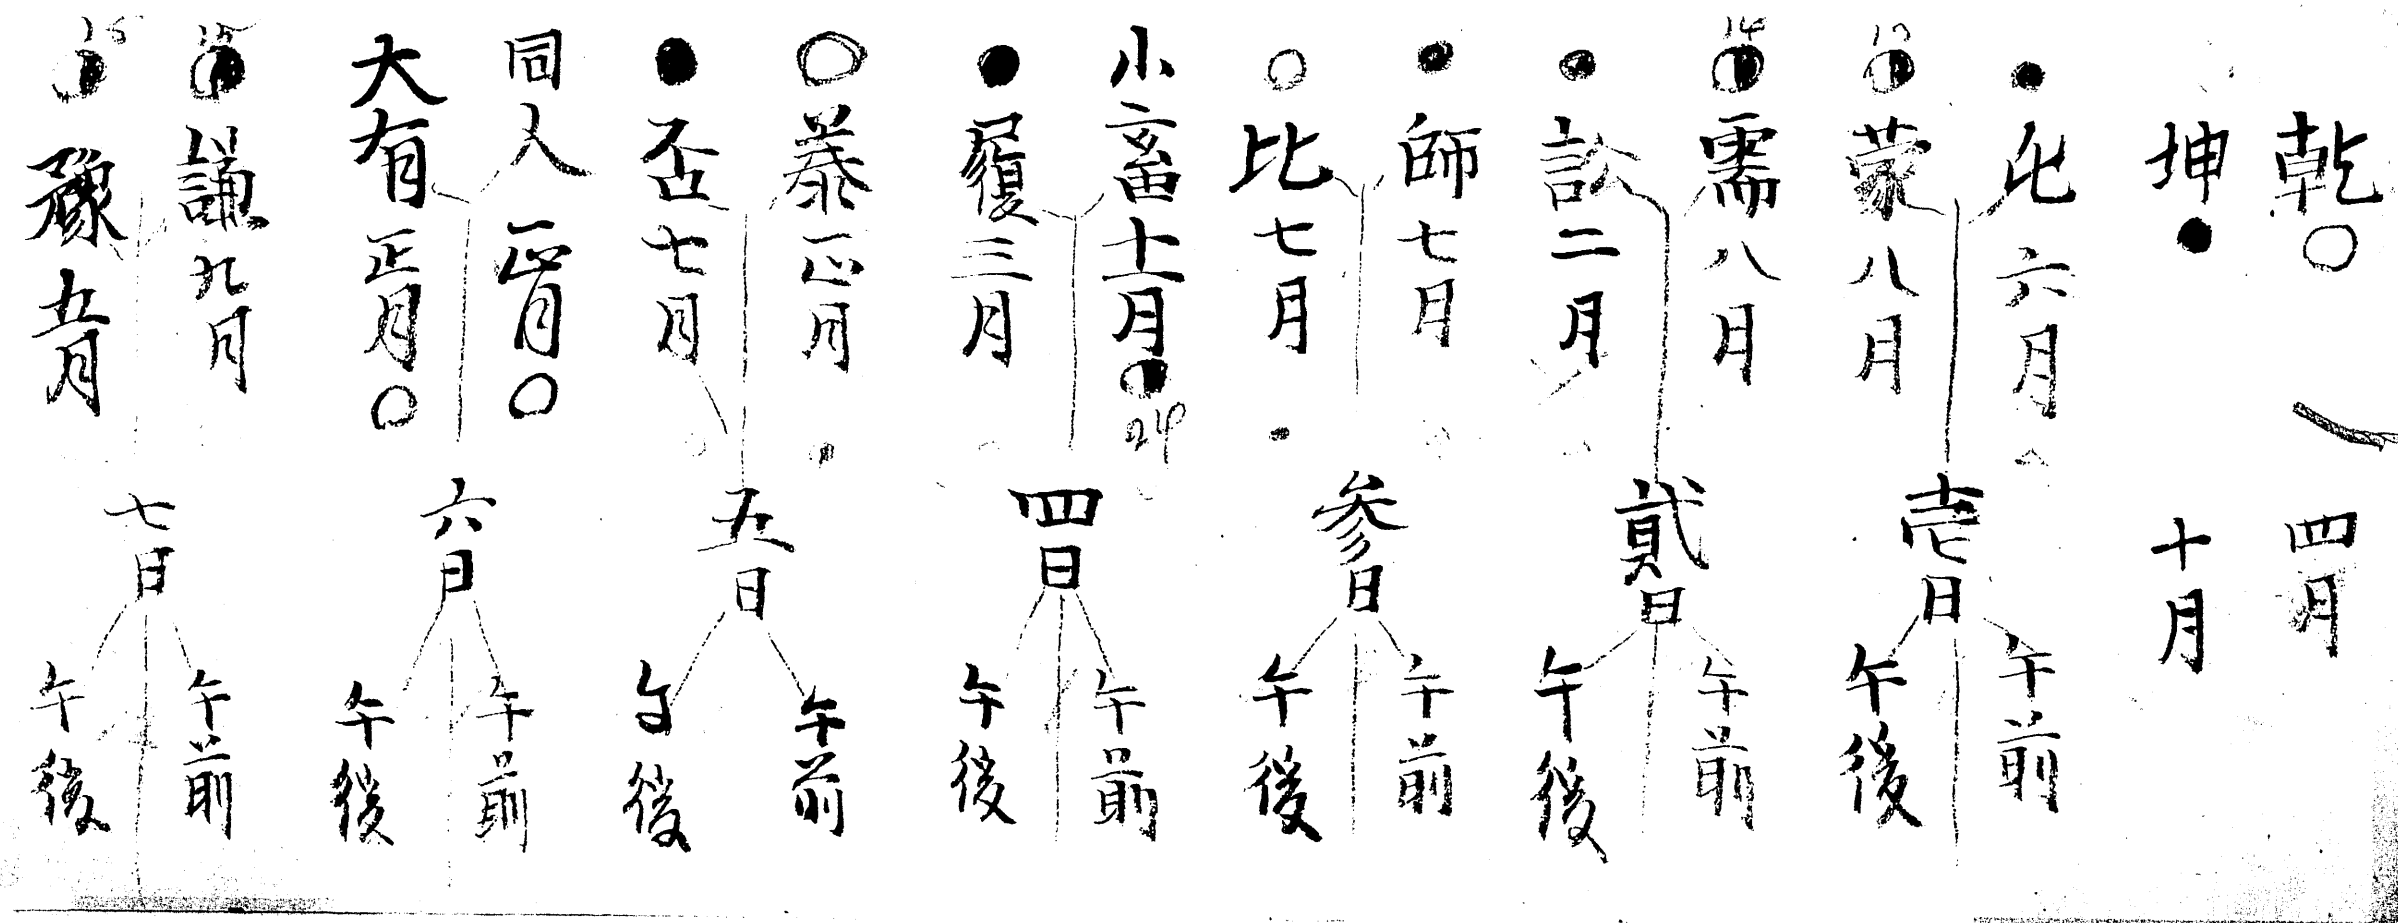 乾○ 四月
坤● 十月
●屯 六月
13 蒙 八月
壱日 午前 午後
14 需 八月
●訟 二月
貳日 午前 午後
●師 七月
○比 七月
参日 午前 午後
小畜 十一月 24
●履 三月
四日 午前 午後
○泰 正月
●否 七月
五日 午前 午後
同人 正月○
大有 正月○
六日 午前 午後
15 謙 九月
16 豫 五月
七日 午前 午後